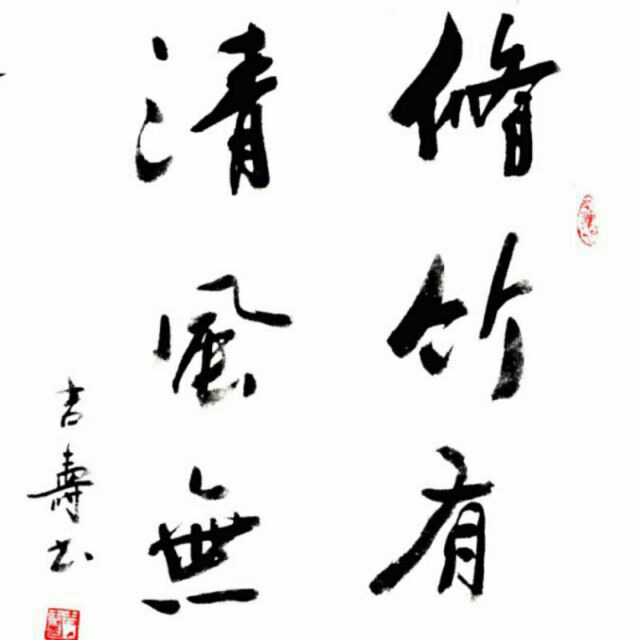 脩竹有
清風無
吉壽书